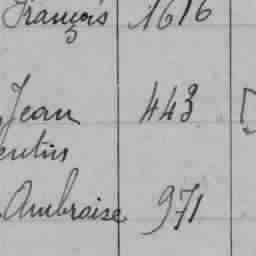 François 1616
Jean 443
Ambroise 971